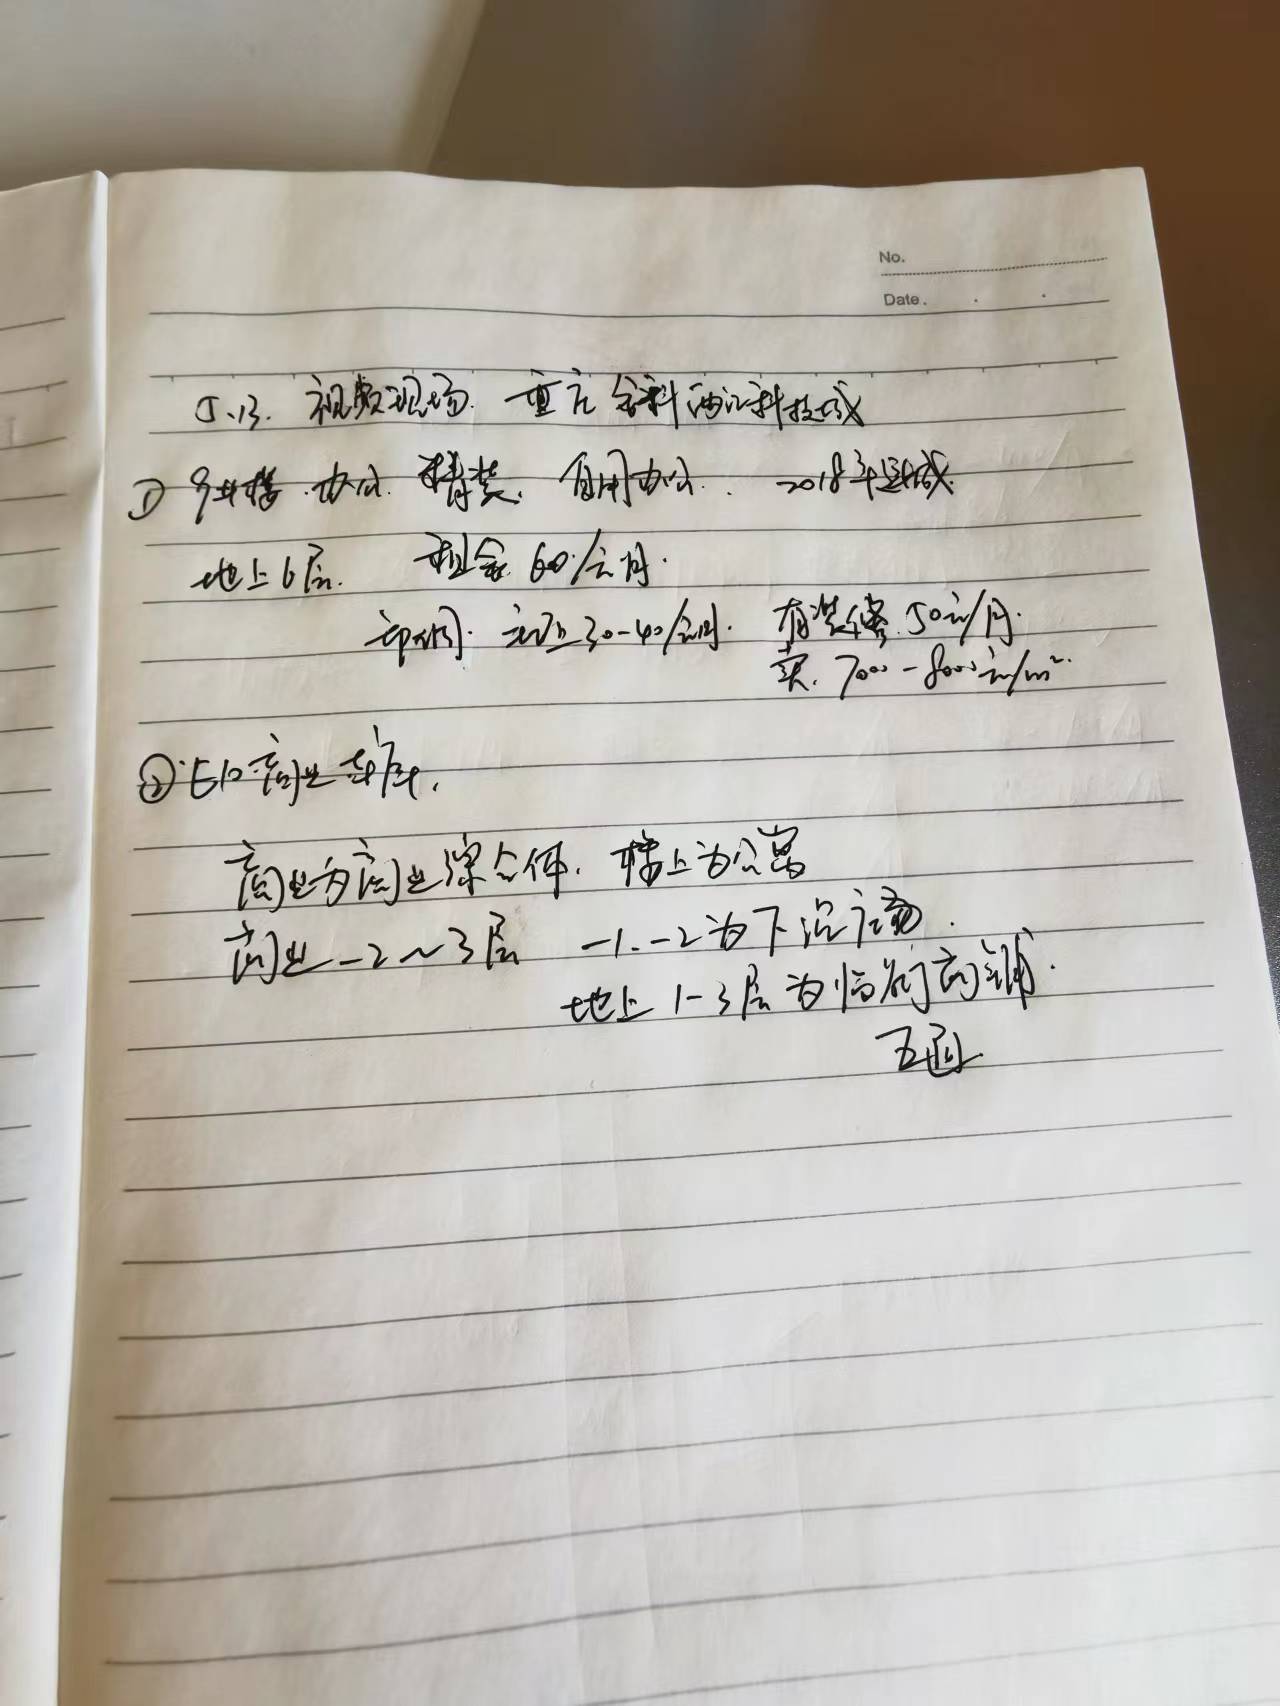 No.
Date.
5.13. 视频现场. 重庆 金科两江科技城
① 9#楼. 办公. 精装. 自用办公. 2018年建成.
地上6层. 租金 60/元月.
30-40/元月. 有装修. 50元/月.
买. 7000-8000元/m².
② E10商业车库.
商业为商业综合体. 楼上为公寓
商业-2~3层 -1.-2为下沉广场.
地上 1-3层为临街商铺.